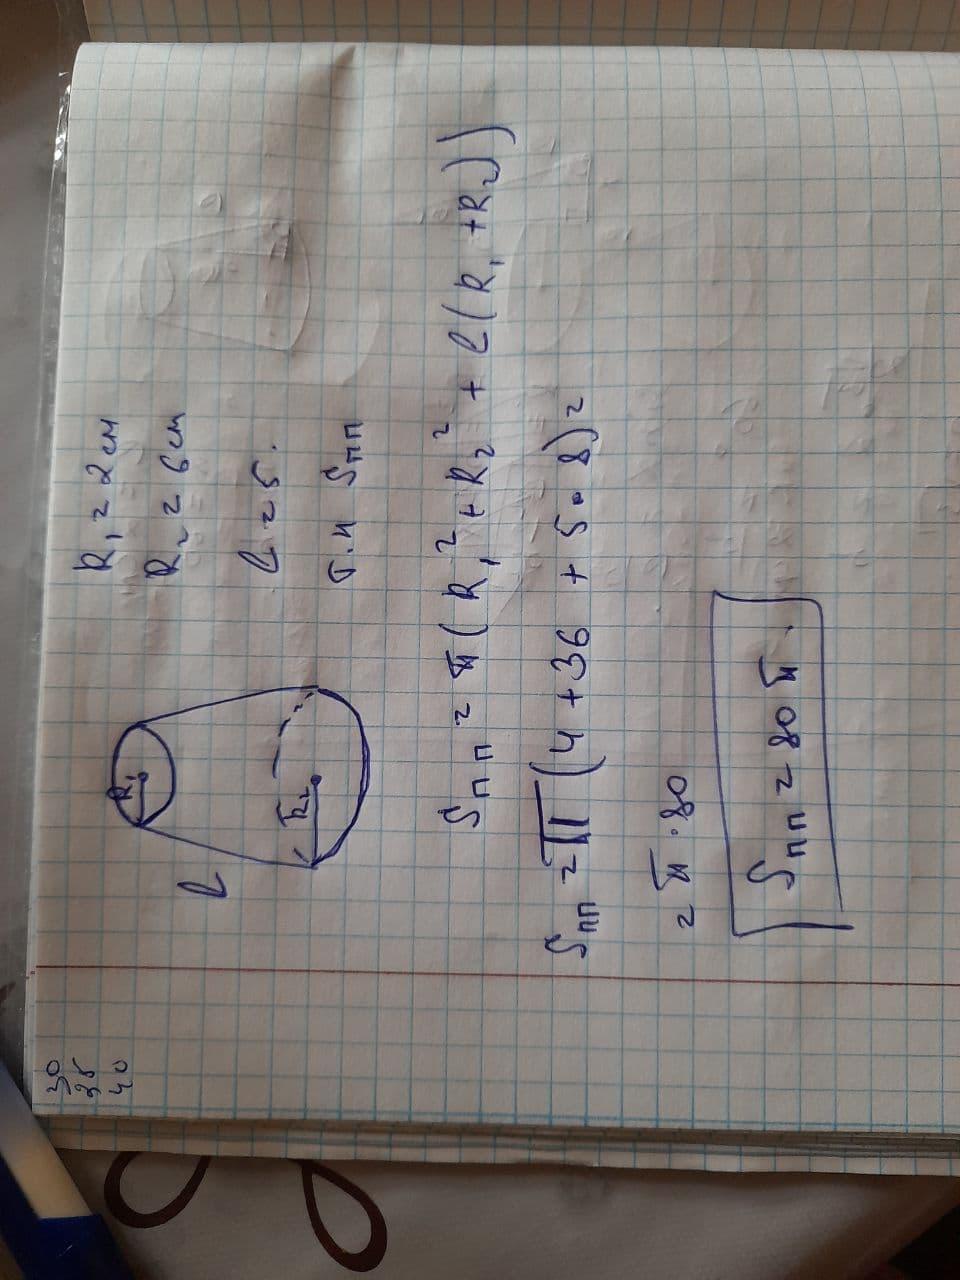 30
35
40
R₁ = 2 см
R₂ = 6 см
l = 5.
т.н Sпп
R₁
R₂
l
Sпп = π(R₁² + R₂² + l(R₁ + R₂))
Sпп = π(4 + 36 + 5 · 8) =
= π · 80
Sпп = 80π.